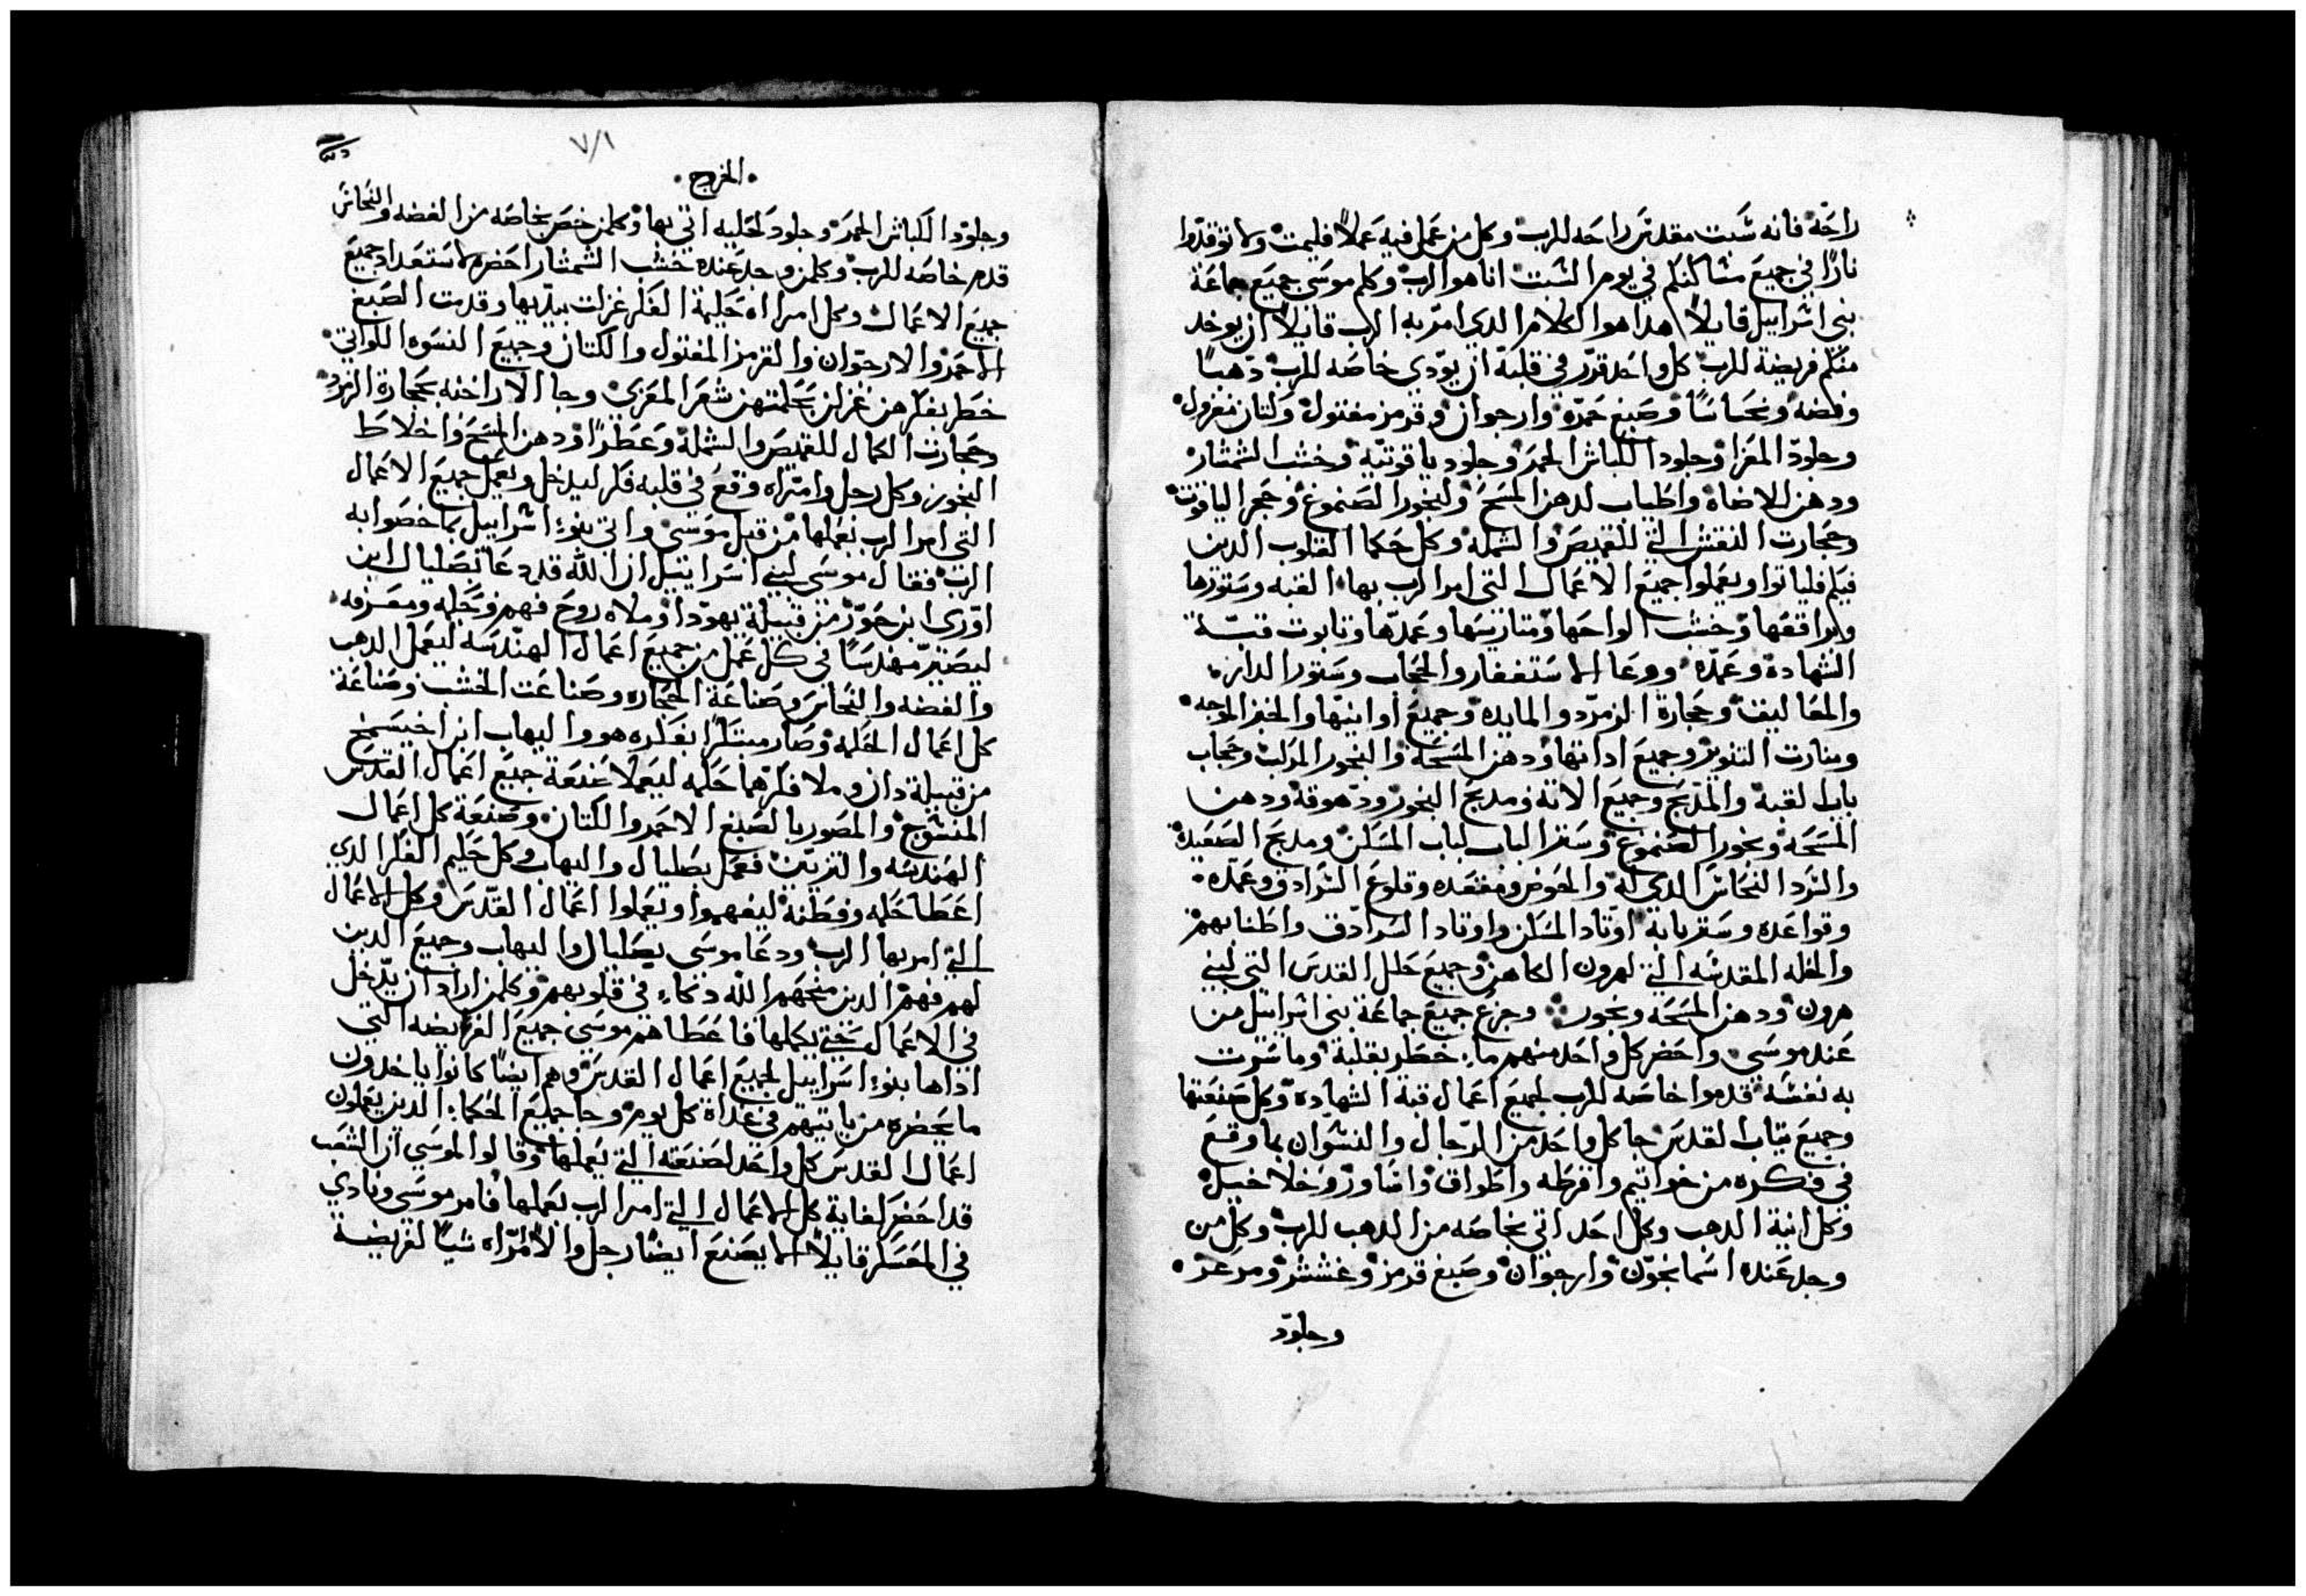 راحة فانه سبت مقدس راحه للرب وكل من عمل فيه عملاً فليمت ولا توقدوا
نارًا في جميع مساكنكم في يوم السبت انا هو الرب وكلم موسى جميع جماعة
بني اسراييل قايلاً هدا هو الكلام الدي امر به الرب قايلاً ان يوخد
منكم فريضة للرب كل واحد قرر في قلبة ان يودي خاصه للرب دهبًا
وفضه ونحاسًا وصبغ حمره وارجوان وقرمز مفتول وكتان مغزول
وجلود المعزا وجلود الكباش الحمر وجلود ياقوتيه وخشب الشمشار
ودهن للاضاه واطياب لدهن المسح ولبخور الصموغ وحجر الياقوت
وحجارت النقش التي للقميص والشمله وكل حكما القلوب الدين
فيكم فلياتوا ويعملوا جميع الاعمال التي امر الرب بها القبه وستورها
وبراقعها وخشب الواحها ومتاريسها وعمدها وتابوت قبة
الشهادة وعمده ووعا الاستغفار والحجاب وستور الدار
والمعاليق وحجارة الزمرد والمايده وجميع اوانيها والخبز الوجه
ومنارت التنوير وجميع اداتها ودهن المسحة والبخور المركب وحجاب
باب القبة والمدبح وجميع الاتة ومدبح البخور ودهوقة ودهن
المسحه وبخور الصموغ وستر الباب لباب المسكن ومدبح الصعيدة
والسرد النحاس الدي له والحوض ومقعده وقلوع السرادق وعمده
وقواعده وستر بابة اوتاد المسكن واوتاد السرادق واطنابهم
والحله المقدسه التي لهرون الكاهن وجميع حلل القدس التي لبني
هرون ودهن المسحه وبخور وخرج جميع جماعة بني اسراييل من
عند موسى واحضر كل واحد منهم ما خطر بقلبة وما سرت
به نفسه قدموا خاصه للرب لجميع اعمال قبة الشهادة وكل صنعتها
وجميع تياب القدس جا كل واحد من الرجال والنسوان بما وقع
في فكره من خواتيم واقرطه واطواق واساور وخلاخيل
وكل انية الدهب وكل احد اتي بخاصه من الدهب للرب وكل من
وجد عنده اسمانجون وارجوان وصبغ قرمز وعشتر ومرعز
وجلود
الخروج
وجلود الكباش الحمر وجلود كحليه اتي بها وكلمن خص بخاصه من الفضه والنحاس
قدم خاصه للرب وكلمن وجد عنده خشب الشمشار احضره لاستعداد جميع
جميع الاعمال وكل امراه حكيمة الفكر غزلت بيديها وقدمت الصبغ
الاحمر والارجوان والقرمز المفتول والكتان وجميع النسوه اللواتي
خطر بفكرهن غزلن بحكمتهن شعر المعزى وجا الاراخنه بحجارة الزمرد
وحجارت الكمال للقميص والشملة وعطرًا ودهن المسح واخلاط
البخور وكل رجل وامراه وقع في قلبه فكر ليدخل ويعمل جميع الاعمال
التي امر الرب بعملها من قبل موسى واتي بنو اسراييل بما خصوا به
الرب فقال موسى لبني اسراييل ان الله قد دعا بصليال ابن
اوري ابن حور من قبيلة يهودا وملاه روح فهم وحكمه ومعرفه
ليصير مهندسًا في كل عمل من جميع اعمال الهندسه ليعمل الدهب
والفضه والنحاس وصناعة الحجاره وصناعت الخشب وصناعة
كل اعمال الحكمه وصار مبتكرًا بفكره هو واليهاب ابن اخيسمخ
من قبيلة دان وملا فكرهما حكمه ليعملا صنعة جميع اعمال القدس
المنسوج والمصور بالصبغ الاحمر والكتان وصنعة كل اعمال
الهندسه والتزيين فعمل بصليال واليهاب وكل حكيم الفكر الدي
اعطا حكمه وفطنة ليفهموا ويعملوا اعمال القدس وكل الاعمال
التي امر بها الرب ودعا موسى بصليال واليهاب وجميع الدين
لهم فهم الدين منحهم الله دكاء في قلوبهم وكلمن اراد ان يدخل
في الاعمال حتي يكملها فاعطاهم موسى جميع الفريضه التي
اداها بنو اسراييل لجميع اعمال القدس وهم ايضًا كانوا ياخدون
ما يحضره من ياتيهم في غداة كل يوم وجا جميع الحكما الدين يعملون
اعمال القدس كل واحد لصنعته التي يعملها وقالوا لموسي ان الشعب
قد احضر كفاية كل الاعمال التي امر الرب بعملها فامر موسى ونادي
في المعسكر قايلاً لا يصنع ايضًا رجل والا امراه شيًا لفريضة